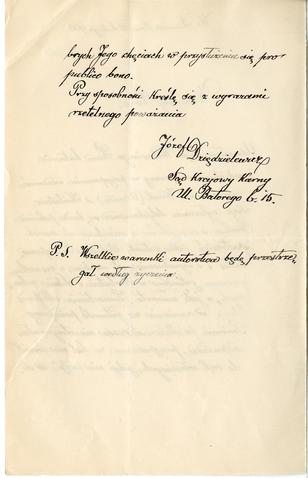 brych Jego chęciach w przysłużeniu się pro
publico bono.
Przy sposobności kreślę się z wyrazami
rzetelnego poważania
Józef Dzędzielewicz
Sąd Krajowy Karny
Ul. Batorego l. 15.
P. S. Wszelkie warunki autorstwa będę przestrze,
gał według życzenia.